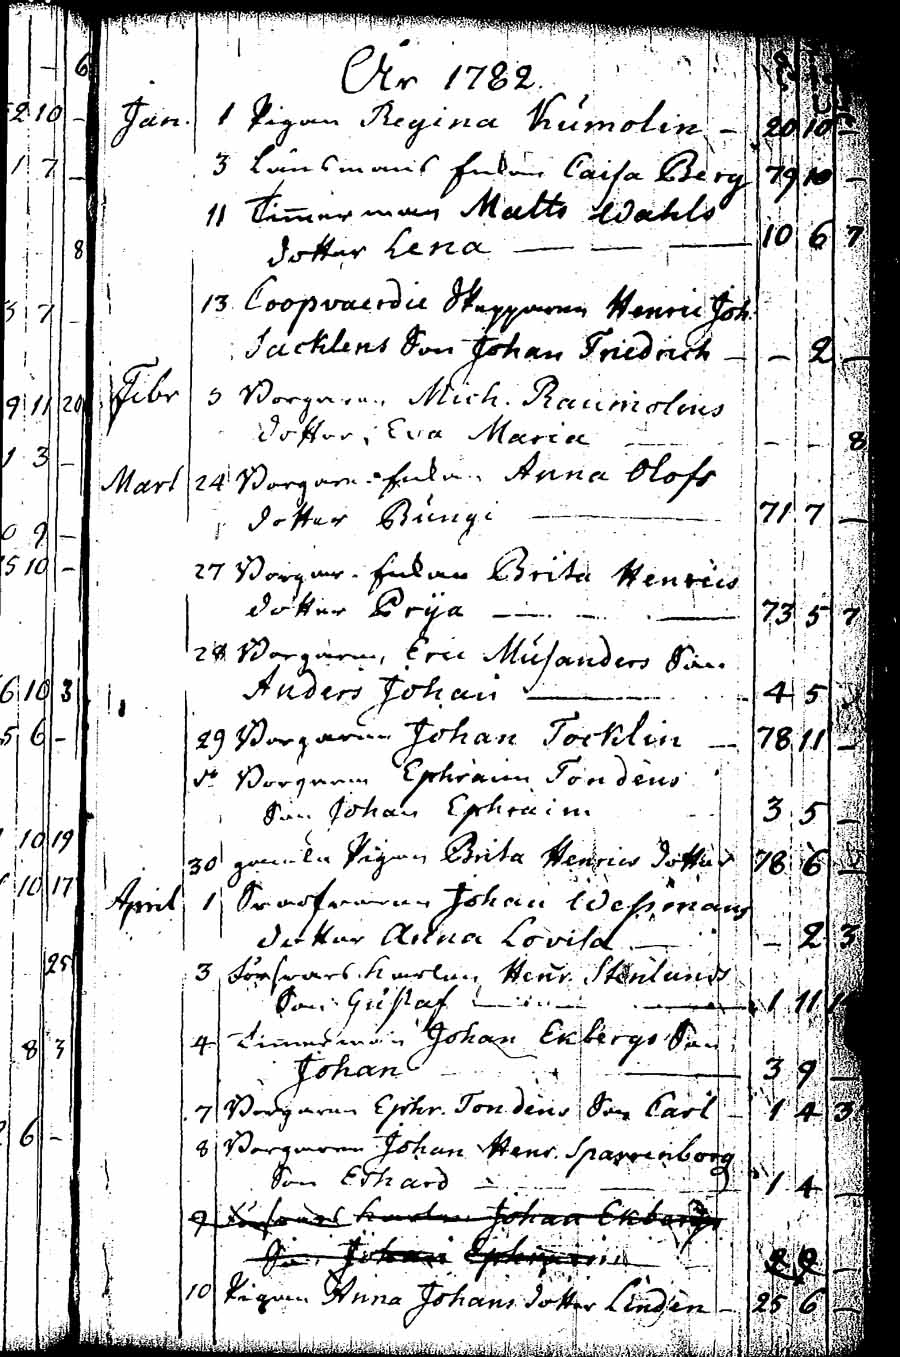 År 1782.
Jan. 1 Pigan Regina Kumolin — 20 10 —
3 Länsmans Enkan Caisa Berg 79 10 —
11 Timmerman Matts Wahls
dotter Lena — 10 6 7
13 Coopvaerdie Skepparen Henric Joh.
Jacklens Son Johan Friedrich — — 2 —
Febr 3 Borgaren Mich. Raumolins
dotter, Eva Maria — — — 8
Mart 24 Borgare Enkan Anna Olofs
dotter Bungi — 71 7 —
27 Borgar Enkan Brita Henrics
dotter Prija — 73 5 7
28 Borgaren, Eric Musanders Son
Anders Johan — 4 5
29 Borgaren Johan Tocklin — 78 11 —
do Borgaren Ephraim Tondens
Son Johan Ephraim 3 5 —
30 gamla Pigan Brita Henrics dotter 78 6 —
April 1 Johan Wessmans
dotter Anna Lovisa — — 2 3
3 Henr. Stenlunds
Son Gustaf — 1 11
4 Timmerman Johan Ekbergs Son
Johan — 3 9 —
7 Borgaren Ephr. Tondens Son Carl — 1 4 3
8 Borgaren Johan Henr. Sparrenborg
Son Erhard — 1 4 —
9 Johan Ekbergs
Son Johan Ephraim
10 Pigan Anna Johans dotter Linden — 25 6 —